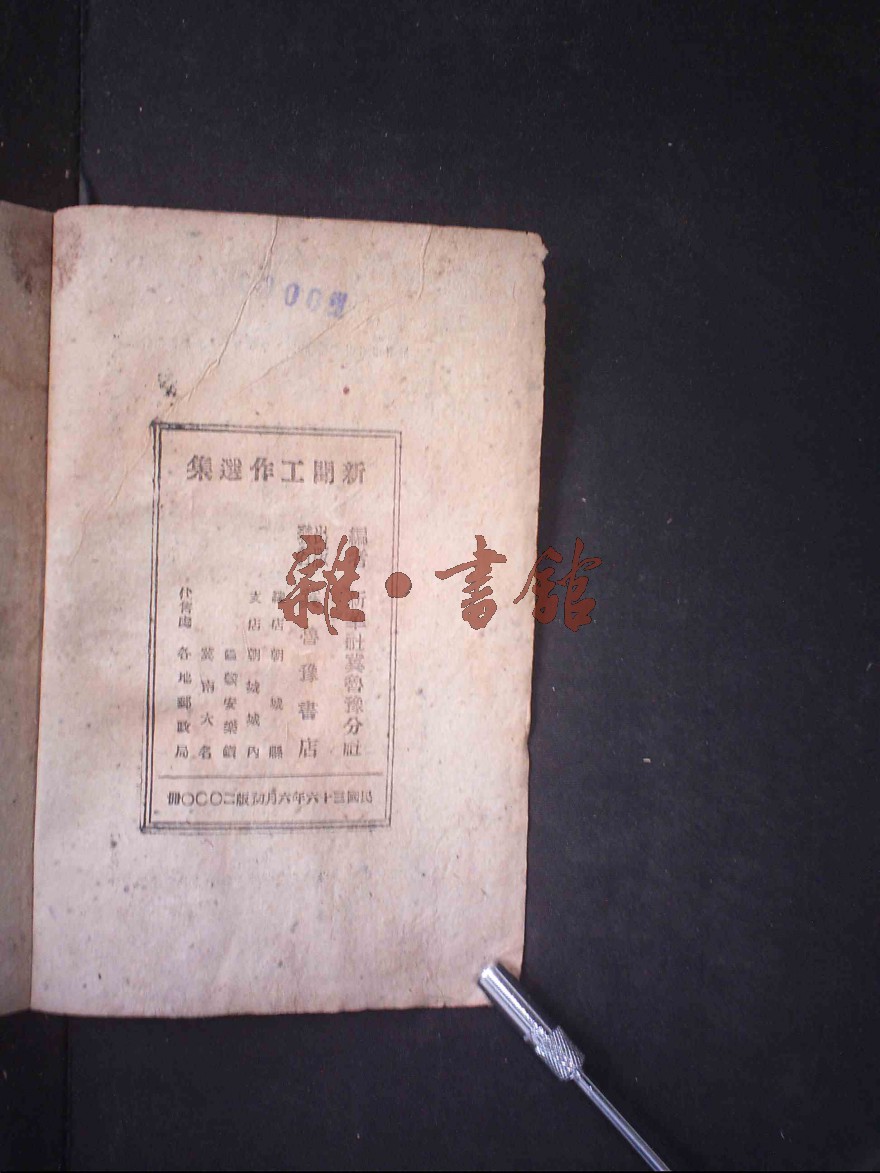 新聞工作選集
編者 新華社冀魯豫分社
魯豫書店
總店 朝城縣
支店 朝城城內
安樂鎮
冀南大名
代售處 各地郵政局
民國三十六年六月初版二〇〇〇冊
雜·書館